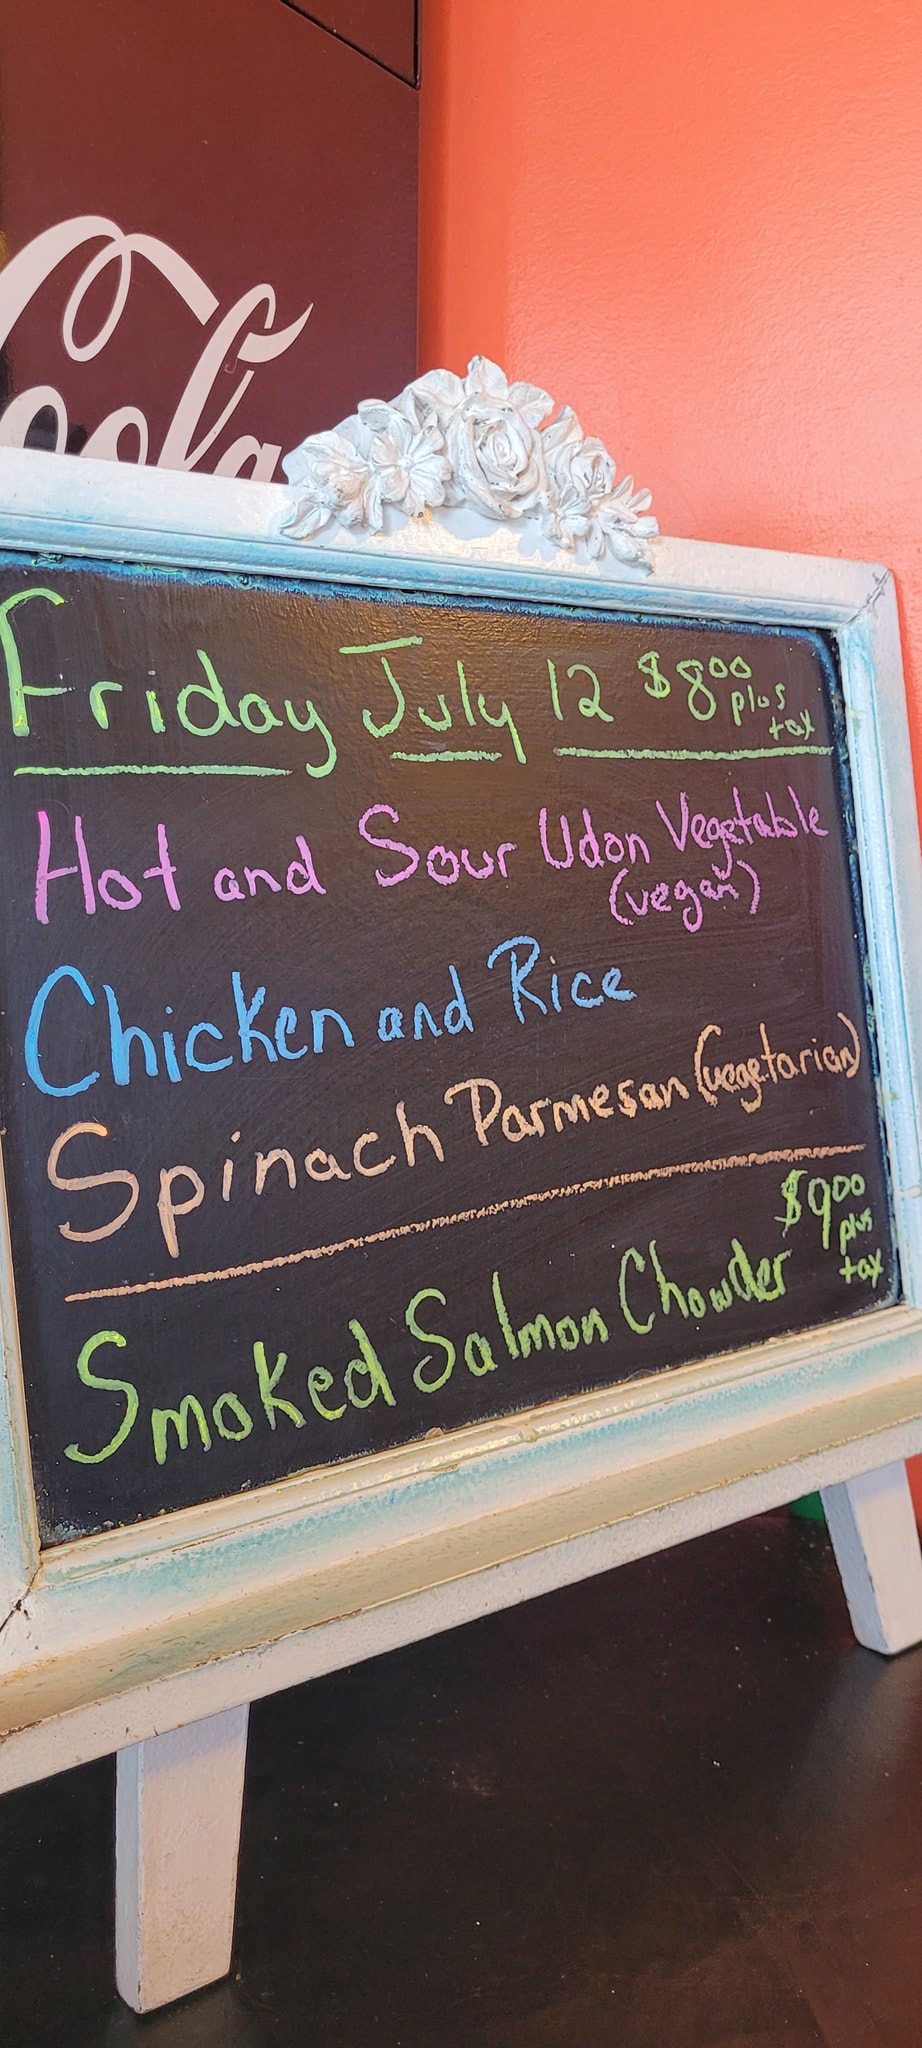 Coca
Friday July 12 $8.00 plus tax
Hot and Sour Udon Vegetable
(vegan)
Chicken and Rice
Spinach Parmesan (vegetarian)
$9.00 plus tax
Smoked Salmon Chowder